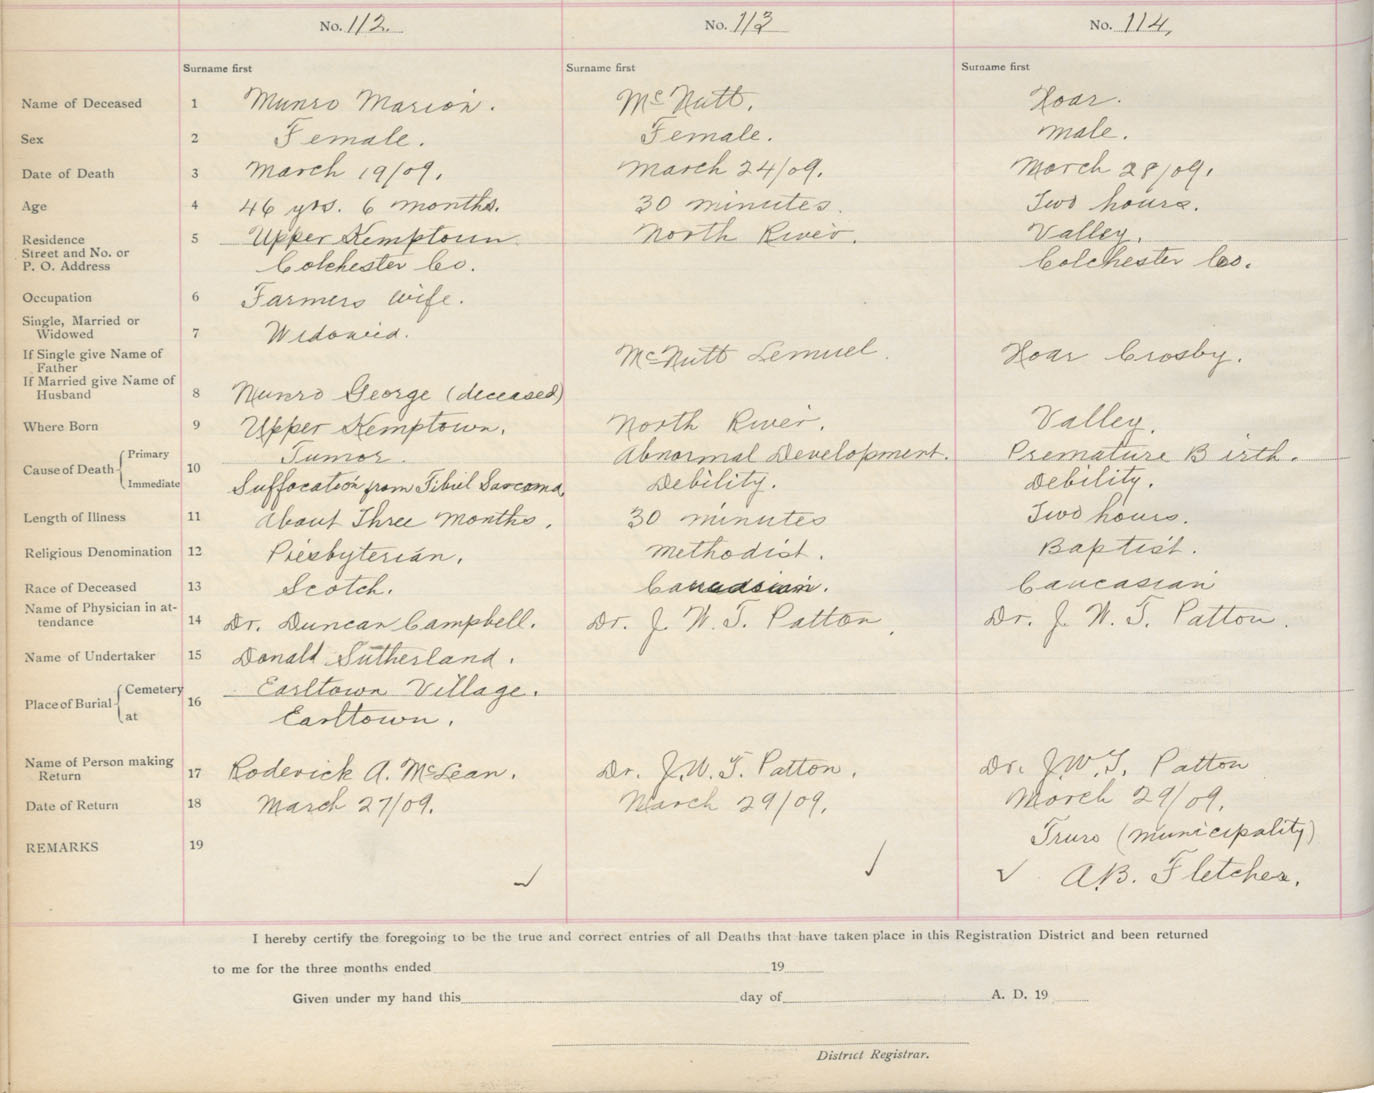 No. 112. No. 113 No. 114,
Surname first Surname first Surname first
Name of Deceased 1 Munro Marion. McNutt. Hoar.
Sex 2 Female. Female. Male.
Date of Death 3 March 19/09. March 24/09. March 28/09.
Age 4 46 yrs. 6 months. 30 minutes. Two hours.
Residence 5 Upper Kemptown North River. Valley.
Street and No. or
P. O. Address Colchester Co. Colchester Co.
Occupation 6 Farmers wife.
Single, Married or
Widowed 7 Widowed.
If Single give Name of
Father McNutt Lemuel. Hoar Crosby.
If Married give Name of
Husband 8 Munro George (deceased)
Where Born 9 Upper Kemptown. North River. Valley.
Primary Tumor. Abnormal Development. Premature Birth.
Cause of Death 10
Immediate Suffocation from Sarcoma. Debility. Debility.
Length of Illness 11 About Three Months. 30 minutes Two hours.
Religious Denomination 12 Presbyterian. Methodist. Baptist.
Race of Deceased 13 Scotch. Caucasian
Name of Physician in at-
tendance 14 Dr. Duncan Campbell. Dr. J. W. T. Patton. Dr. J. W. T. Patton.
Name of Undertaker 15 Donald Sutherland.
Cemetery Earltown Village.
Place of Burial 16
at Earltown.
Name of Person making
Return 17 Roderick A. McLean. Dr. J. W. T. Patton. Dr. J. W. T. Patton
Date of Return 18 March 27/09. March 29/09. March 29/09.
Truro (Municipality)
REMARKS 19
A.B. Fletcher.
I hereby certify the foregoing to be the true and correct entries of all Deaths that have taken place in this Registration District and been returned
to me for the three months ended 19
Given under my hand this day of A. D. 19
District Registrar.